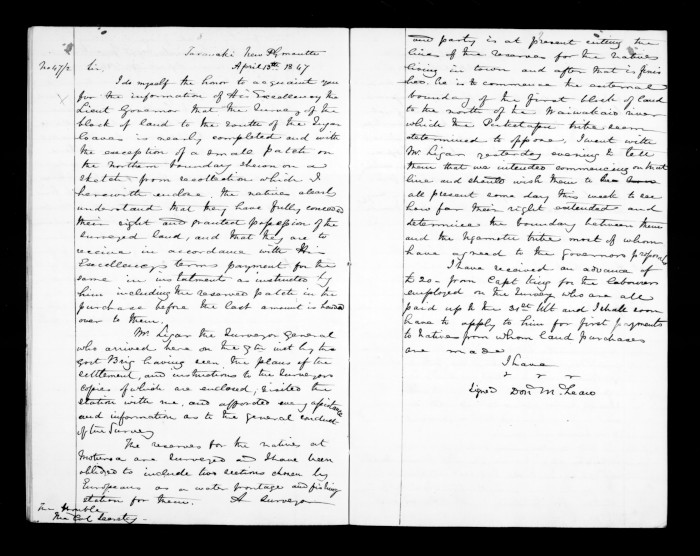 Taranaki New Plymouth
April 13th 1847
No 47/2
Sir.
I do myself the honor to acquaint you
for the information of His Excellency the
Lieut Governor that the Survey of the
block of land to the South of the Sugar
loaves is nearly completed and with
the exception of a small patch on
the Northern boundary shewn on a
sketch from recollection which I
herewith enclose the natives
understand that they have fully conceded
their right and granted possession of the
Surveyed land, and that they are to
receive in accordance with His
Excellency's terms payment for the
same in instalments as instructed by
him including the reserved patch in the
purchase before the last amount is handed
over to them
Mr Ligar the Surveyor general
who arrived here on the 9th inst by the
Govt Brig having seen the plans of the
settlement, and instructions to the Surveyors
copies of which are enclosed, visited the
station with me, and afforded every assistance
and information as to the general conduct
of the Survey
The reserves for the natives at
are surveyed and I have been
obliged to include two sections chosen by
Europeans as a water frontage and fishing
station for them. A Surveyor
The Honble
The Col Secretary
and party is at present cutting the
lines of the reserves for the natives
living in town and after that is finis
hed he is to commence the external
boundary of the first block of land
to the north of the Waiwakaio river
which the Puketapu tribe seem
determined to oppose. I went with
Mr Ligar yesterday evening to tell
them that we intended commencing on that
line and should wish them to
all present some day this week to see
how far their right extended and
determine the boundary between them
and the Ngamotu tribe most of whom
have agreed to the Governors proposals
I have received an advance of
£20- from Capt King for the labourers
employed on the Survey who are all
paid up to the 31st Ult and I shall soon
have to apply to him for first payments
to natives from whom land purchases
are made
I have
" " "
Signed Don McLean